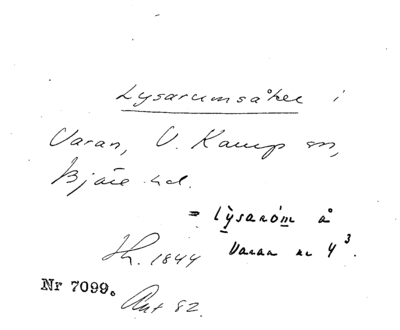 Lysarumsåker i
Varan, V. Karup sn,
Bjäre hd.
= lỳsaróm å
Varan nr 4³.
Sk. 1844
Nr 7099.
Ant 82.